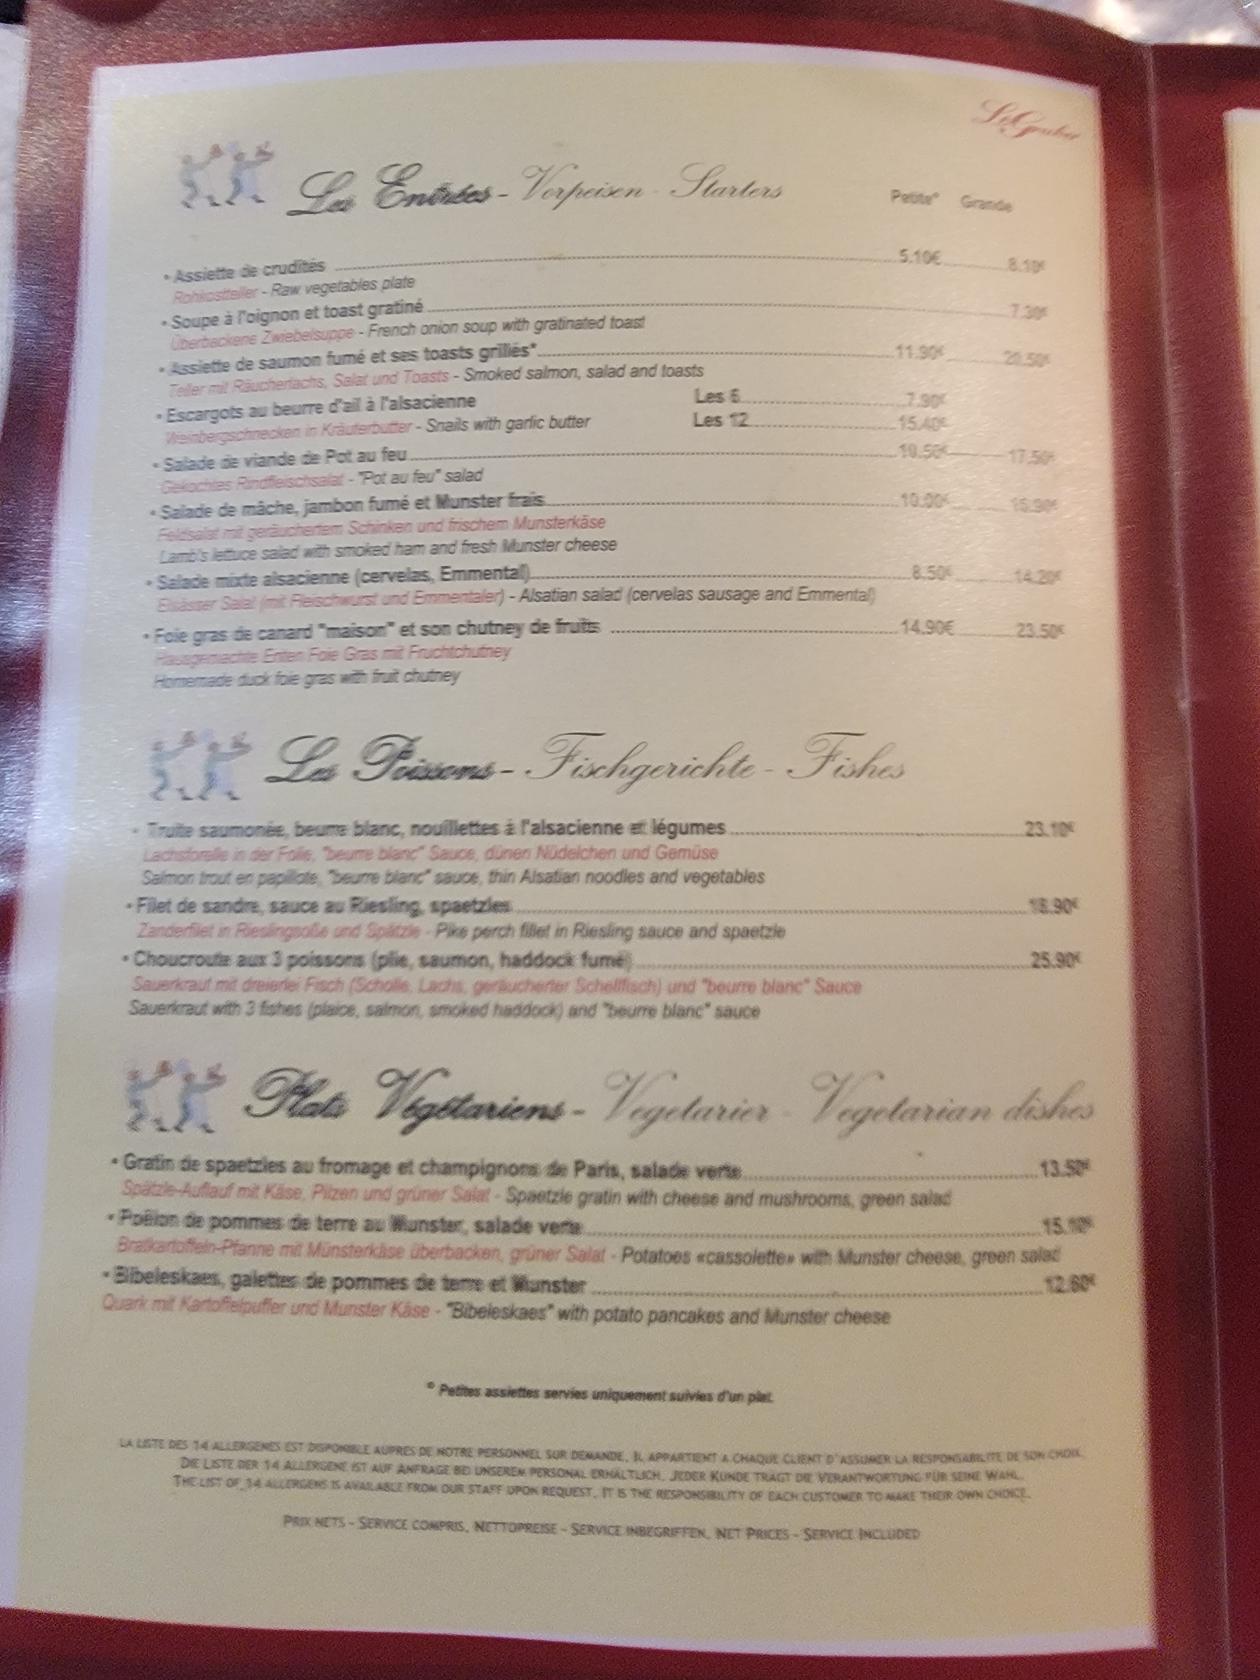 Le Gruber
Les Entrées - Vorpeisen - Starters Petite* Grande
• Assiette de crudités 5.10€ 8.10€
Rohkostteller - Raw vegetables plate
• Soupe à l'oignon et toast gratiné 7.30€
Überbackene Zwiebelsuppe - French onion soup with gratinated toast
• Assiette de saumon fumé et ses toasts grillés* 11.90€ 20.50€
Teller mit Räucherlachs, Salat und Toasts - Smoked salmon, salad and toasts
• Escargots au beurre d'ail à l'alsacienne Les 6 7.90€
Weinbergschnecken in Kräuterbutter - Snails with garlic butter Les 12 15.40€
• Salade de viande de Pot au feu 10.50€ 17.50€
Gekochtes Rindfleischsalat - "Pot au feu" salad
• Salade de mâche, jambon fumé et Munster frais 10.00€ 15.90€
Feldsalat mit geräuchertem Schinken und frischem Munsterkäse
Lamb's lettuce salad with smoked ham and fresh Munster cheese
• Salade mixte alsacienne (cervelas, Emmental) 8.50€ 14.20€
Elsässer Salat (mit Fleischwurst und Emmentaler) - Alsatian salad (cervelas sausage and Emmental)
• Foie gras de canard "maison" et son chutney de fruits 14.90€ 23.50€
Hausgemachte Enten Foie Gras mit Fruchtchutney
Homemade duck foie gras with fruit chutney
Les Poissons - Fischgerichte - Fishes
• Truite saumonée, beurre blanc, nouillettes à l'alsacienne et légumes 23.10€
Lachsforelle in der Folie, "beurre blanc" Sauce, dünen Nüdelchen und Gemüse
Salmon trout en papillote, "beurre blanc" sauce, thin Alsatian noodles and vegetables
• Filet de sandre, sauce au Riesling, spaetzles 18.90€
Zanderfilet in Rieslingsoße und Spätzle - Pike perch fillet in Riesling sauce and spaetzle
• Choucroute aux 3 poissons (plie, saumon, haddock fumé) 25.90€
Sauerkraut mit dreierlei Fisch (Scholle, Lachs, geräucherter Schellfisch) und "beurre blanc" Sauce
Sauerkraut with 3 fishes (plaice, salmon, smoked haddock) and "beurre blanc" sauce
Plats Végétariens - Vegetarier - Vegetarian dishes
• Gratin de spaetzles au fromage et champignons de Paris, salade verte 13.50€
Spätzle-Auflauf mit Käse, Pilzen und grüner Salat - Spaetzle gratin with cheese and mushrooms, green salad
• Poêlon de pommes de terre au Munster, salade verte 15.10€
Bratkartoffeln-Pfanne mit Münsterkäse überbacken, grüner Salat - Potatoes «cassolette» with Munster cheese, green salad
• Bibeleskaes, galettes de pommes de terre et Munster 12.60€
Quark mit Kartoffelpuffer und Munster Käse - "Bibeleskaes" with potato pancakes and Munster cheese
* Petites assiettes servies uniquement suivies d'un plat.
LA LISTE DES 14 ALLERGENES EST DISPONIBLE AUPRES DE NOTRE PERSONNEL SUR DEMANDE, IL APPARTIENT A CHAQUE CLIENT D'ASSUMER LA RESPONSABILITE DE SON CHOIX.
DIE LISTE DER 14 ALLERGENE IST AUF ANFRAGE BEI UNSEREM PERSONAL ERHÄLTLICH, JEDER KUNDE TRÄGT DIE VERANTWORTUNG FÜR SEINE WAHL.
THE LIST OF 14 ALLERGENS IS AVAILABLE FROM OUR STAFF UPON REQUEST, IT IS THE RESPONSIBILITY OF EACH CUSTOMER TO MAKE THEIR OWN CHOICE.
PRIX NETS - SERVICE COMPRIS, NETTOPREISE - SERVICE INBEGRIFFEN, NET PRICES - SERVICE INCLUDED